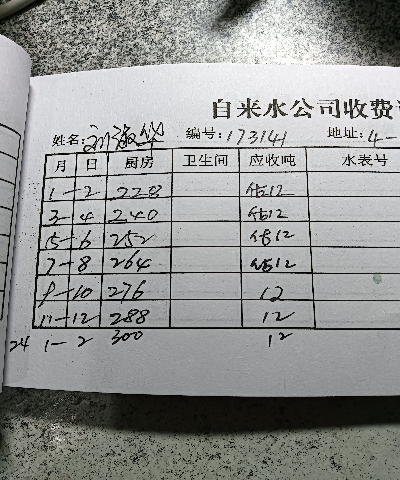 自来水公司收费
姓名:刘淑华 编号:173141 地址:4-
月 日 厨房 卫生间 应收吨 水表号
1-2 228 估12
3-4 240 估12
5-6 252 估12
7-8 264 估12
9-10 276 12
11-12 288 12
24 1-2 300 12